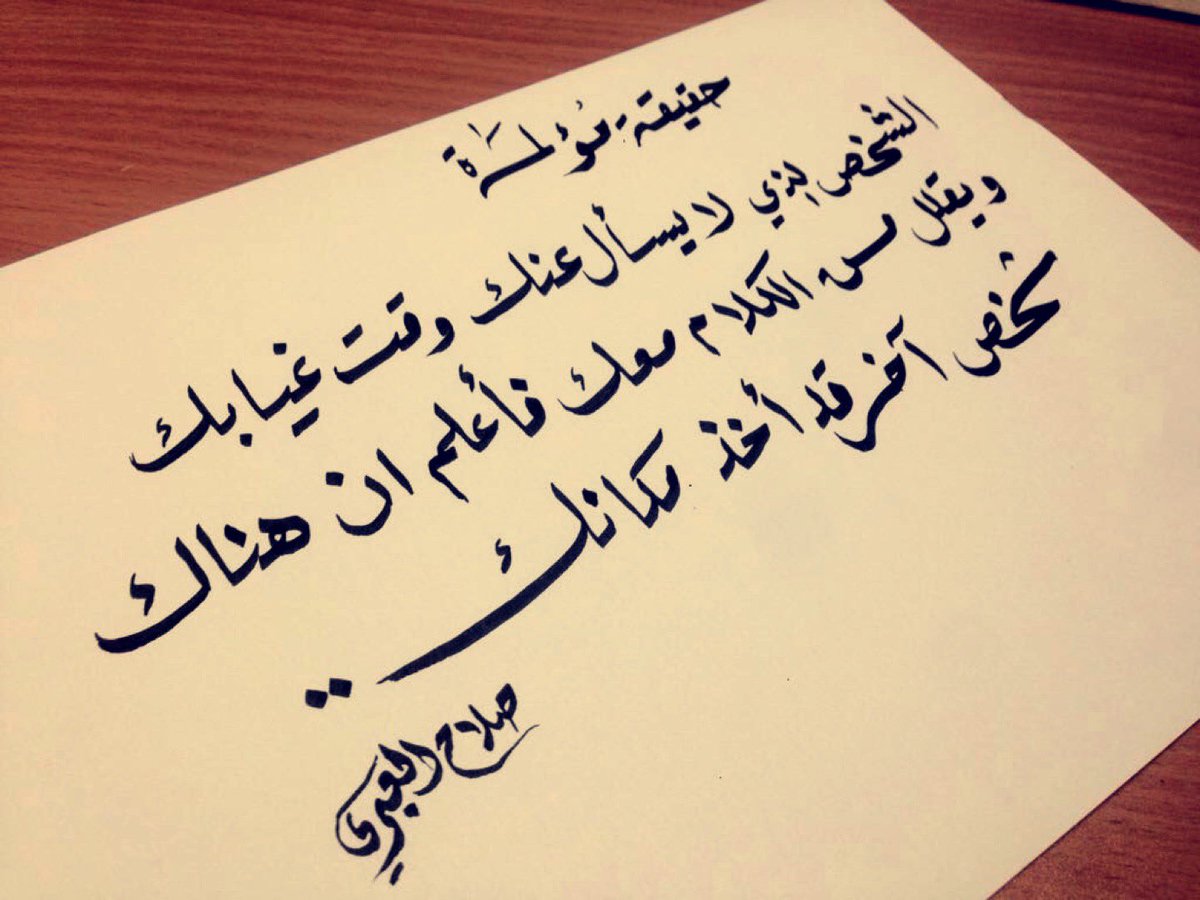 حقيقة مؤلمة
الشخص الذي لا يسأل عنك وقت غيابك
ويقلل من الكلام معك فأعلم ان هناك
شخص آخر قد أخذ مكانك ..
صلاح المعبري